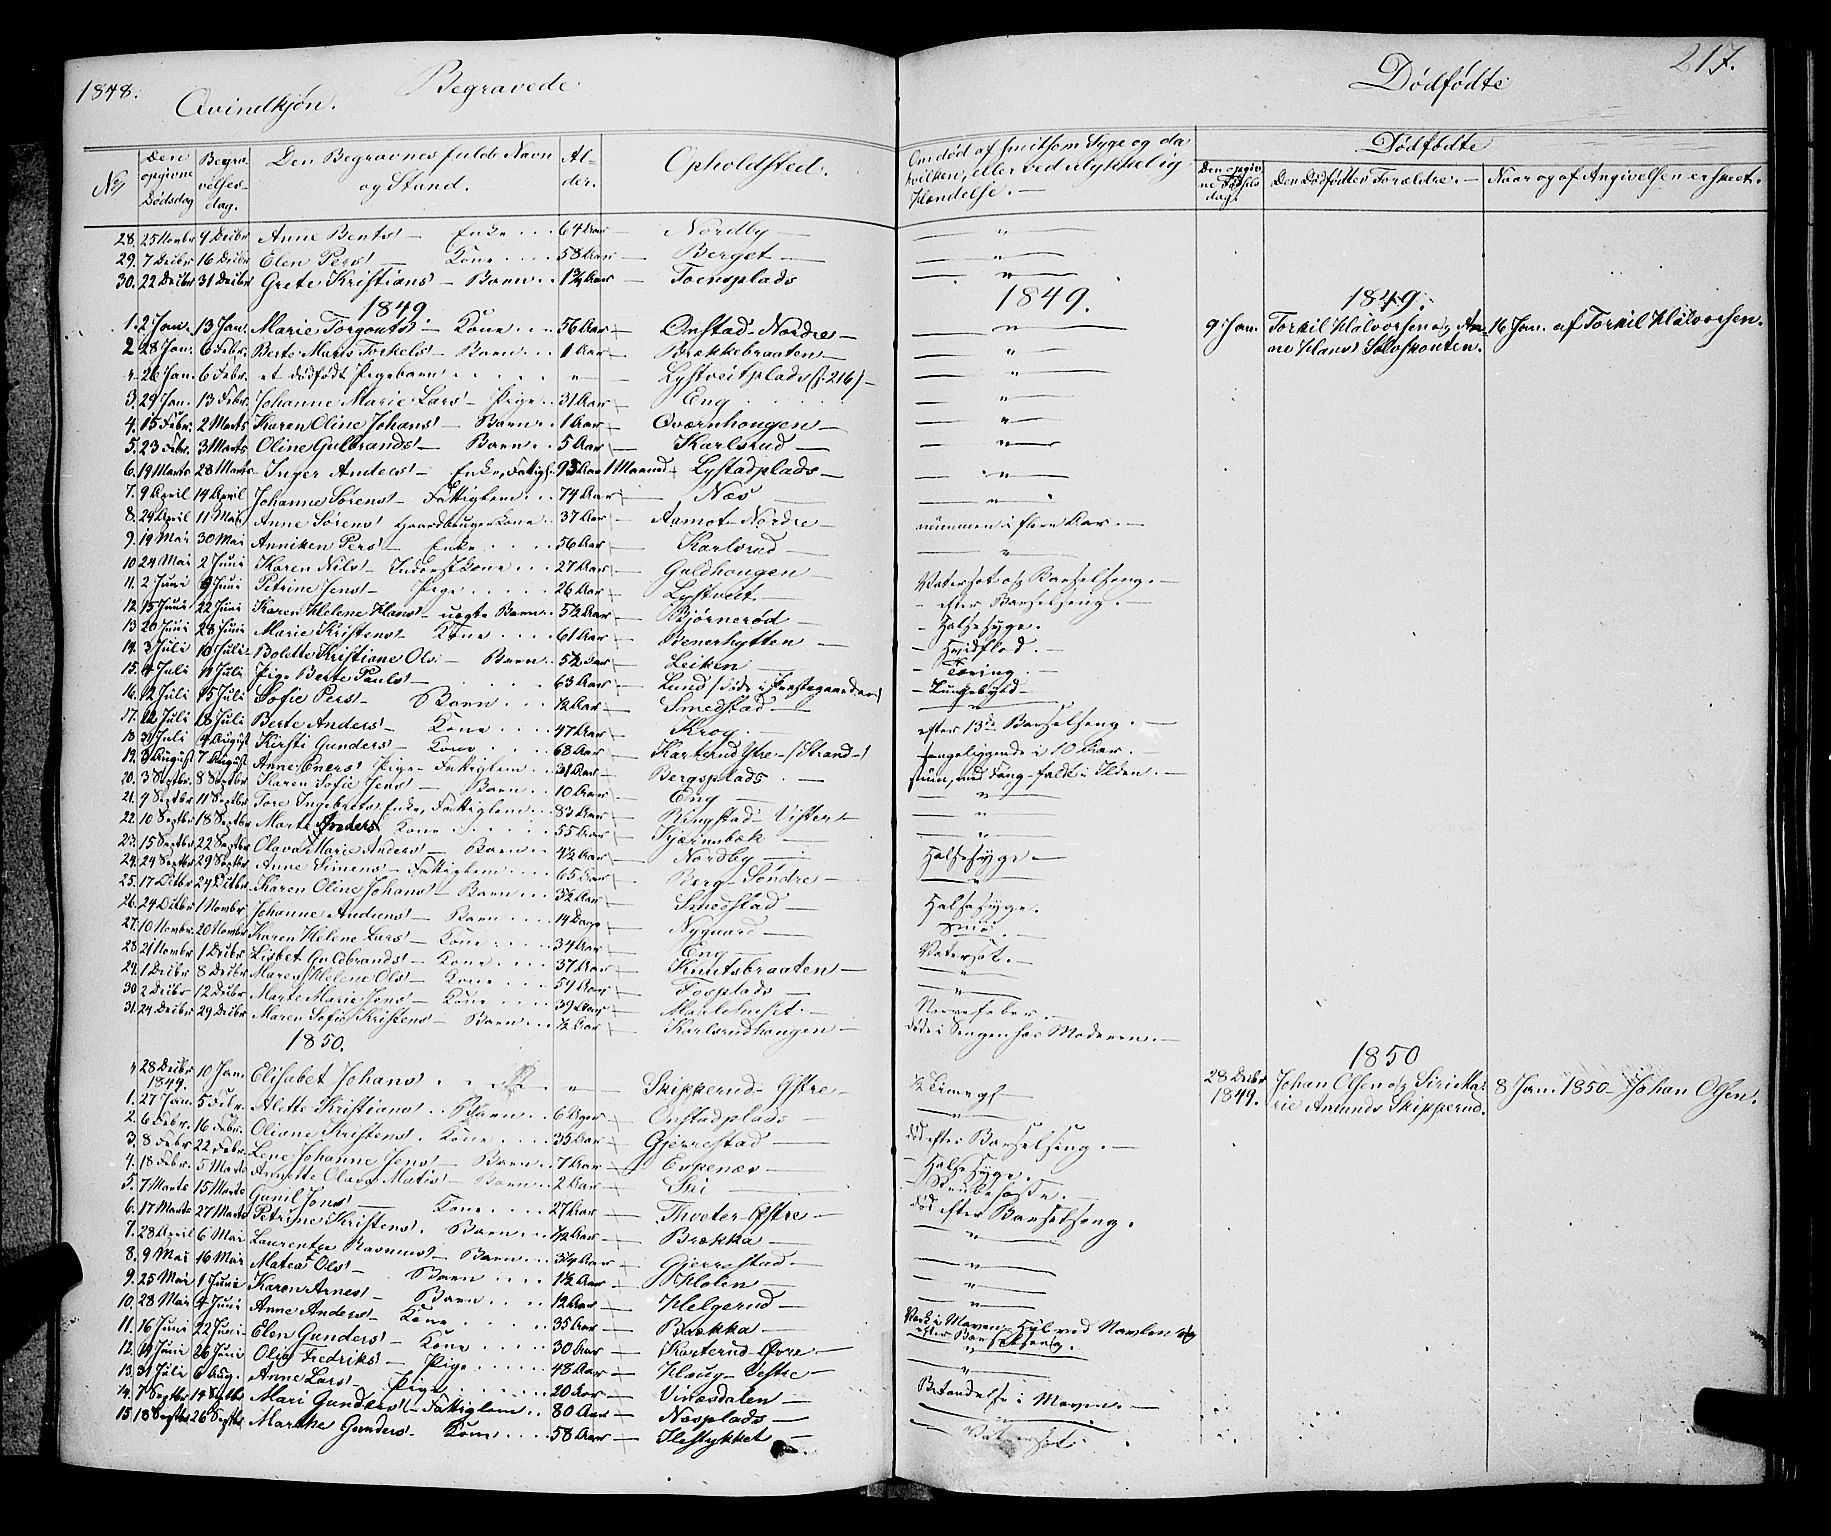 1848. Qvindkjön. Begravede
Dödfödte 217.
No Den opgivne Dödsdag Begravelsesdag. Den Begravnes fulde Navn og Stand. Alder. Opholdsted. Om död af smitsom Syge og da hvilken, eller ved ulykkelig Hændelse. —
Dödfödte
Den opgivne Födselsdag. Den Dödfödtes Forældre. — Naar og af Angivelsen er skeet.
28. 25 Novbr 4 Decbr Anne Bents — Enke 64 Aar — Nordby — "
29. 7 Decbr 16 Decbr Elen Pers — Kone 58 Aar — Berget — "
30. 22 Decbr 31 Decbr Grete Kristians — Barn 1¾ Aar — Toensplads "
1849. 1849. 1849.
1. 2 Jan. 13 Jan. Marie Torgouts — Kone 56 Aar — Onstad-Nordre — " 9 Jan. Torkil Halvorsen og An- 16 Jan. af Torkil Halvorsen.
2. 28 Jan. 6 Febr. Berte Maris Torkels — Barn 1 Aar — Brækkebraaten — " ne Hans Sölvskouten.
" 26 Jan. 6 Febr. et dödfödt Pigebarn " — Lystveitplads (S. 216) — "
3. 29 Jan. 13 Febr. Johanne Marie Lars — Pige 31 Aar — Eng "
4. 15 Febr. 2 Marts Karen Oline Johans — Barn 1 Aar — Qværnhougen — "
5. 23 Febr. 3 Marts Oline Gulbrands — Barn 5 Aar — Karlsrud — "
6. 19 Marts 28 Marts Inger Anders — Enke, Fattigl. 93 Aar 1 Maaned — Lystadplads — "
7. 9 April 14 April Johanne Sörens — Fattiglem 74 Aar — Næs "
8. 29 April 11 Mai Anne Sörens Gaardbrugerkone 37 Aar — Aamot-Nordre — i flere Aar. —
9. 19 Mai 30 Mai Anniken Pers — Enke 56 Aar Karlsrud — "
10. 24 Mai 2 Juni Karen Nils — Inderstkone 27 Aar — Guldhougen — Vatersot og Barselseng. —
11. 2 Juni 9 Juni Petrine Jens — Pige 26 Aar — Lystveit — — efter Barselseng. —
12. 15 Juni 22 Juni Karen Helene Hans — uægte Barn 5½ Aar — Bjørneröd — — Halssyge.
13. 20 Juni 28 Juni Marie Kristens — Kone 61 Aar — Benerhytten — — Hvidflod. —
14. 3 Juli 10 Juli Bolette Kristiane Ols — Barn 5½ Aar — Leiken — — Tæring. —
15. 4 Juli 11 Juli Pige Berte Pauls — 63 Aar — Lund — Lungebyld —
16. 12 Juli 15 Juli Sofie Pers — Barn ½ Aar — Smedstad — "
17. 12 Juli 18 Juli Berte Anders — Kone 47 Aar — Krog — efter 13de Barselseng. —
18. 31 Juli 4 August Kirsti Gunders — Kone 68 Aar — Karterud Ytre — (Strand —) sengeliggende i 10 Aar. —
19. 3 August 7 August Anne Eners Pige — Fattiglem 21 Aar — Bergsplads — faldt i Ilden. —
20. 3 Septbr. 8 Septbr Karen Sofie Jens — Barn 10 Aar — Eng — "
21. 4 Septbr 11 Septbr Tore Ingebrets Enke, Fattiglem 83 Aar — Ringstad- Vister — "
22. 10 Septbr 18 Septbr Marte Anders Kone 55 Aar — Kjærnsbæk — "
23. 15 Septbr 22 Septbr Olava Marie Anders — Barn 4½ Aar — Nordby — Halssyge —
24. 24 Septbr 29 Septbr Anne Simens — Fattiglem 65 Aar — Berg-Söndre — "
25. 17 Octbr 24 Octbr Karen Oline Johans — Barn 3½ Aar — Smedstad — Halssyge.
26. 24 Octbr 1 Novbr Johanne — Barn 14 Dage — Nygaard —
27. 10 Novbr 20 Novbr Karen Helene Lars — Kone 34 Aar — Eng — Vatersot. —
28. 21 Novbr 1 Decbr Lisbet Guldbrands — Kone 37 Aar — Knutsbraaten — "
29. 1 Decbr 8 Decbr Maren Helene Ols — Kone 54 Aar — Fosplads — "
30. 2 Decbr 12 Decbr Marte Marie Jons — Kone 39 Aar — Nervefeber. —
31. 24 Decbr 29 Decbr Maren Sofie Kristens — Barn ½ Aar — Karlsrudhougen — döde i Sengen hos Moderen. —
1850. 1850
" 28 Decbr 1849. 10 Jan. Elisabet Johans " — Skipperud-Østre — ½ Time gl — 28 Decbr 1849. Johan Olsen og Siri Marie Amunds Skipperud. 8 Jan. 1850 — Johan Olsen.
1. 27 Jan. 5 Febr. Alette Kristians Barn 6 Uger — Onstadplads "
2. 6 Febr. 16 Febr. Oliane Kristens. Kone 35 Aar — Gjerrestad — död efter Barselseng. —
3. 8 Febr 22 Febr. Lene Johanne Jens — Barn 7 Aar — Espenæs — — Halssyge. —
4. 18 Febr. 5 Marts Annette Olava Matis — Barn 2 Aar — Ski — Strubehoste. —
5. 7 Marts 15 Marts Gunil Jons — Kone 27 Aar — Thveter-Østre — död efter Barselseng.
6. 17 Marts 27 Marts Petrine Kristens. Barn ½ Aar — Brækka — "
7. 28 April 6 Mai Laurentze Rasmus — Barn 3¼ Aar — Gjerrestad — "
8. 9 Mai 16 Mai Matea Ols — Barn 1½ Aar — Holen — "
9. 25 Mai 1 Juni Karen Arnes — Barn 12 Aar — Helgerud — "
10. 28 Mai 4 Juni Anne Anders — Kone 35 Aar — Brækka — Værk i Maven — Hul ved Navlen og efter Barselseng.
11. 16 Juni 22 Juni Elen Gunders — Kone 30 Aar — Karterud-Øvre — "
12. 19 Juni 26 Juni Olia Fredriks — Pige 48 Aar — Haug-Vestre — "
13. 31 Juli 6 Aug. Anne Lars — Pige 20 Aar — Vinesdalen — Betændelse i Maven. —
14. 7 Septbr 14 Septbr Mari Gunders — Fattiglem 80 Aar — Næsplads — "
15. 18 Septbr 26 Septbr Marthe Gunders — Kone 58 Aar — Ilestykket — Vatersot.